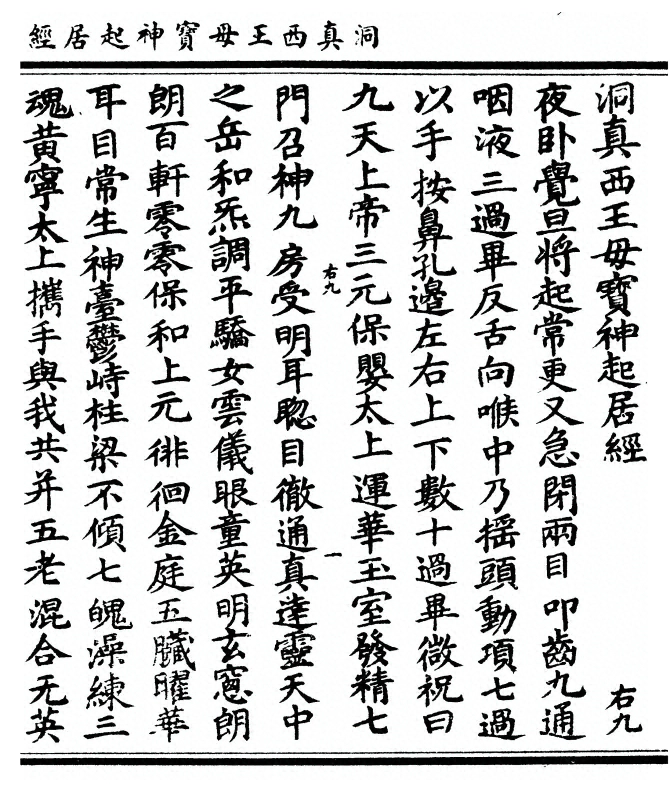 經居起神寳母王西真洞
洞真西王母寳神起居經
右九
夜卧覺旦将起常更又急閉兩目叩齒九通
咽液三過畢反舌向喉中乃揺頭動項七過
以手按鼻孔邊左右上下數十過畢微祝曰
九天上帝三元保嬰太上運華玉室發精七
右九
一
門召神九房受明耳聦目徹通真達靈天中
之岳和炁調平驕女雲儀眼童英明玄窓朗
朗百軒零零保和上元徘徊金庭五臟曜華
耳目常生神臺鬱峙柱梁不傾七魄澡練三
魂黄寧太上攜手與我共并五老混合无英